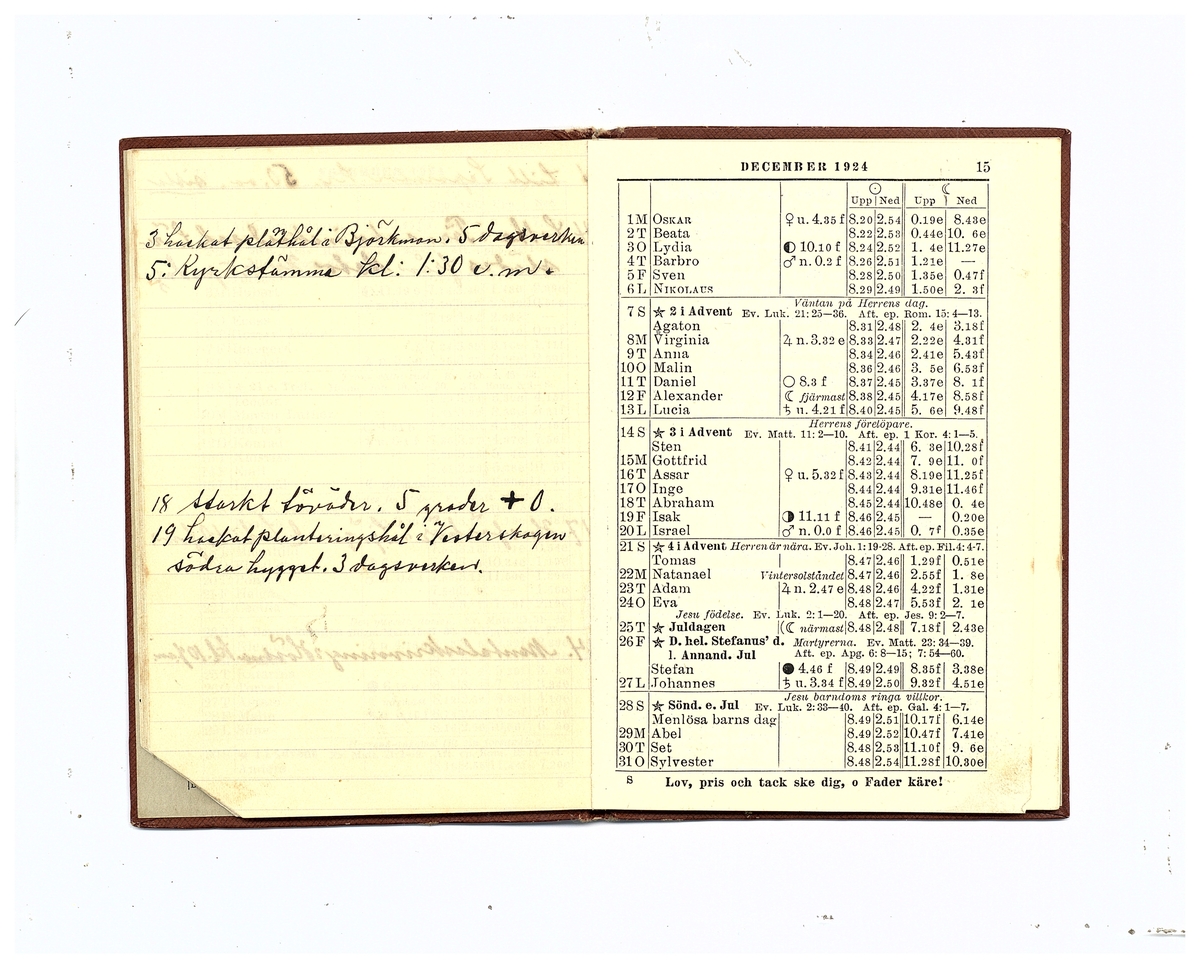 3 hackat plåthål i Björkmon. 5 dagsverken
5: Kyrkstämma kl: 1:30 e. m.
18 starkt töväder. 5 grader + 0.
19 hackat planteringshål i Vesterskogen
södra hygget. 3 dagsverken.
DECEMBER 1924 15
☉ ☾
Upp Ned Upp Ned
1 M OSKAR ♀ u. 4.35 f 8.20 2.54 0.19e 8.43e
2 T Beata 8.22 2.53 0.44e 10. 6e
3 O Lydia ◐ 10.10 f 8.24 2.52 1. 4e 11.27e
4 T Barbro ♂ n. 0.2 f 8.26 2.51 1.21e —
5 F Sven 8.28 2.50 1.35e 0.47f
6 L NIKOLAUS 8.29 2.49 1.50e 2. 3f
Väntan på Herrens dag.
7 S ★ 2 i Advent Ev. Luk. 21: 25—36. Aft. ep. Rom. 15: 4—13.
Agaton 8.31 2.48 2. 4e 3.18f
8 M Virginia ♃ n. 3.32 e 8.33 2.47 2.22e 4.31f
9 T Anna 8.34 2.46 2.41e 5.43f
10 O Malin 8.36 2.46 3. 5e 6.53f
11 T Daniel ○ 8.3 f 8.37 2.45 3.37e 8. 1f
12 F Alexander ☾ fjärmast 8.38 2.45 4.17e 8.58f
13 L Lucia ♄ u. 4.21 f 8.40 2.45 5. 6e 9.48f
Herrens förelöpare.
14 S ★ 3 i Advent Ev. Matt. 11: 2—10. Aft. ep. 1 Kor. 4: 1—5.
Sten 8.41 2.44 6. 3e 10.28f
15 M Gottfrid 8.42 2.44 7. 9e 11. 0f
16 T Assar ♀ u. 5.32 f 8.43 2.44 8.19e 11.25f
17 O Inge 8.44 2.44 9.31e 11.46f
18 T Abraham 8.45 2.44 10.48e 0. 4e
19 F Isak ◑ 11.11 f 8.46 2.45 — 0.20e
20 L Israel ♂ n. 0.0 f 8.46 2.45 0. 7f 0.35e
21 S ★ 4 i Advent Herren är nära. Ev. Joh. 1: 19-28. Aft. ep. Fil. 4: 4-7.
Tomas 8.47 2.46 1.29f 0.51e
22 M Natanael Vintersolståndet 8.47 2.46 2.55f 1. 8e
23 T Adam ♃ n. 2.47 e 8.48 2.46 4.22f 1.31e
24 O Eva 8.48 2.47 5.53f 2. 1e
Jesu födelse. Ev. Luk. 2: 1—20. Aft. ep. Jes. 9: 2—7.
25 T ★ Juldagen (☾ närmast 8.48 2.48 7.18f 2.43e
26 F ★ D. hel. Stefanus' d. Martyrerna. Ev. Matt. 23: 34—39.
l. Annand. Jul Aft. ep. Apg. 6: 8—15; 7: 54—60.
Stefan ● 4.46 f 8.49 2.49 8.35f 3.38e
27 L Johannes ♄ u. 3.34 f 8.49 2.50 9.32f 4.51e
Jesu barndoms ringa villkor.
28 S ★ Sönd. e. Jul Ev. Luk. 2: 33—40. Aft. ep. Gal. 4: 1—7.
Menlösa barns dag 8.49 2.51 10.17f 6.14e
29 M Abel 8.49 2.52 10.47f 7.41e
30 T Set 8.48 2.53 11.10f 9. 6e
31 O Sylvester 8.48 2.54 11.28f 10.30e
S Lov, pris och tack ske dig, o Fader käre!